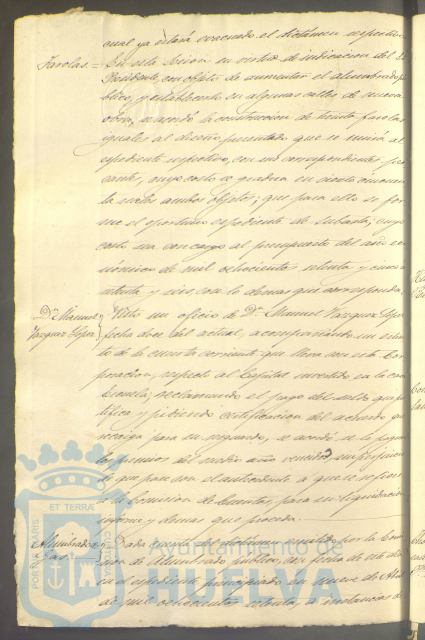 cual ya estará evacuado el dictámen respectivo
Farolas. = En esta sesion en virtud de indicacion del Sr.
Presidente, con objeto de aumentar el alumbrado pú-
blico, y establecerlo en algunas calles de nueva
obra, se acordó la construccion de treinta farolas
iguales al diseño presentado que se unirá al
espediente respectivo, con sus correspondientes pes-
cantes, cuyo costo se gradua en ciento
ambos objetos; que para ello se for-
me el oportuno espediente de subasta, cuyo
costo sea con cargo al presupuesto del año eco-
nómico de mil ochocientos setenta y cinco
setenta y seis, con lo demas que corresponda.
Dn. Manuel Vazquez Lopez
Visto un oficio de Dn. Manuel Vazquez Lopez
fecha doce del actual, acompañando un estrac-
to de la cuenta corriente que lleva con esta Cor-
poracion, respecto al Capital invertido en la
Escuela; reclamando el pago del saldo que jus-
tifica y pidiendo certificacion del acuerdo que
recaiga para su resguardo, se acordó se le pague
los premios del medio año vencido, sin perjuicio
de que pase con el antecedente a que se refiere
á la Comision de Cuentas, para su liquidacion
informe y demas que proceda.
Alumbrado
Dada cuenta del dictamen emitido por la Comi-
sion de Alumbrado publico, con fecha de
en el espediente principiado en nueve de
de mil ochocientos setenta, á instancias de
Ayuntamiento de
HUELVA
ET TERRÆ
PORTUS MARIS
CUSTODIA